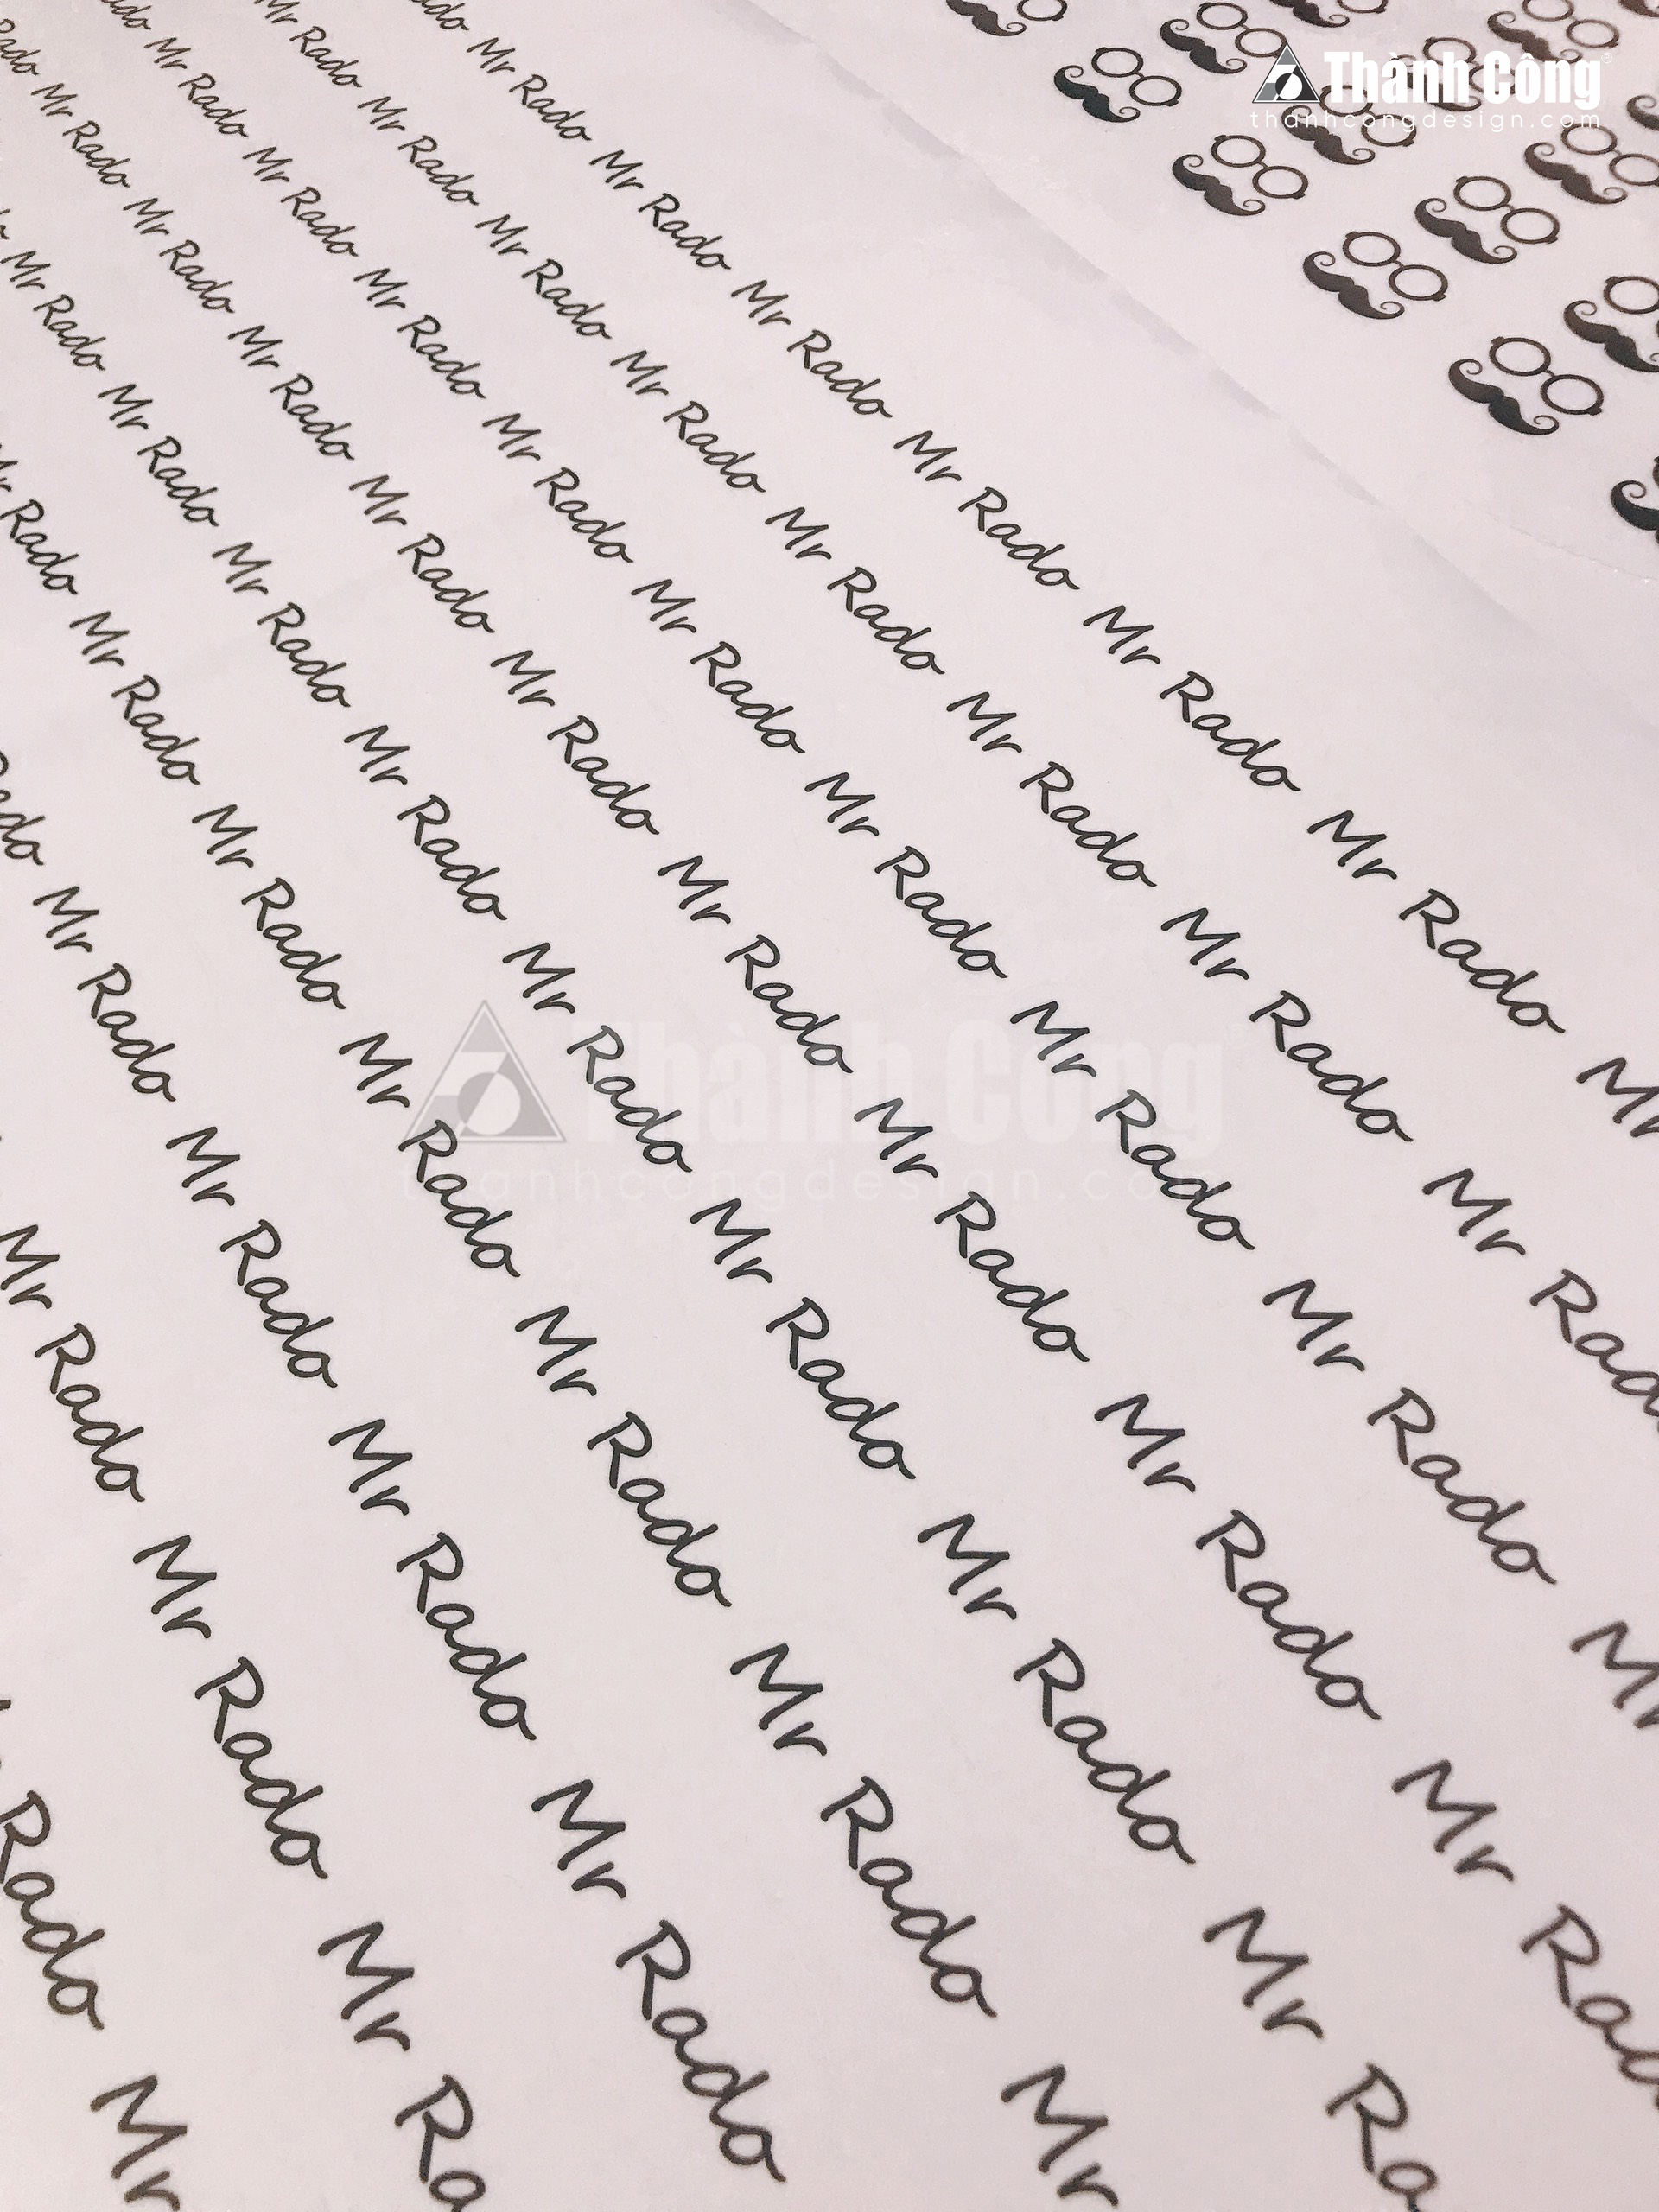 Thành Công
thanhcongdesign.com
Mr Rado Mr Rado Mr Rado Mr Rado Mr Rado Mr Rado Mr
Mr Rado Mr Rado Mr Rado Mr Rado Mr Rado Mr Rado Mr Rado Mr
Mr Rado Mr Rado Mr Rado Mr Rado Mr Rado Mr Rado Mr Rado Mr Rado Mr
Rado Mr Rado Mr Rado Mr Rado Mr Rado Mr Rado Mr Rado Mr Rado Mr Rado Mr
Mr Rado Mr Rado Mr Rado Mr Rado Mr Rado Mr Rado Mr Rado Mr
Mr Rado Mr Rado Mr Rado Mr Rado Mr Rado Mr Rado Mr
Mr Rado Mr Rado Mr Rado Mr Rado
Mr Rado Mr Rado Mr
Rado Mr
Thành Công
thanhcongdesign.com